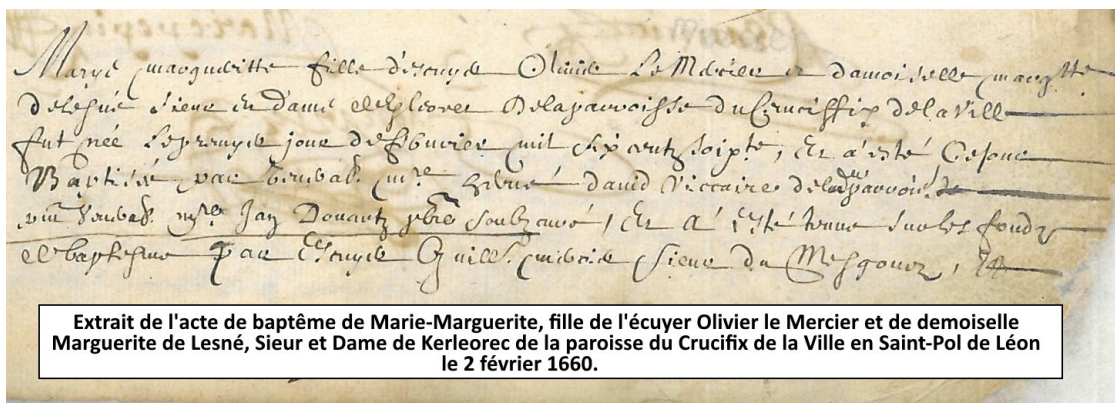 Marye margueritte fille d'escuyer Olivier Le Mercier et damoiselle margtte
delesné sieur et dame de Kleorec de la parroisse du Cruciffix de la Ville
fut née le premyer jour de febvrier mil six centz soixte, Et a esté ce jour
Baptisée par venerab. mre hervé david viccaire de lad parroisse
venerab. mre Jan pbre soubzcuré, Et a esté tenue sur les fondz
de baptesme par Escuyer Guill. mercier sieur du Mesgouez, Et
Extrait de l'acte de baptême de Marie-Marguerite, fille de l'écuyer Olivier le Mercier et de demoiselle
Marguerite de Lesné, Sieur et Dame de Kerleorec de la paroisse du Crucifix de la Ville en Saint-Pol de Léon
le 2 février 1660.